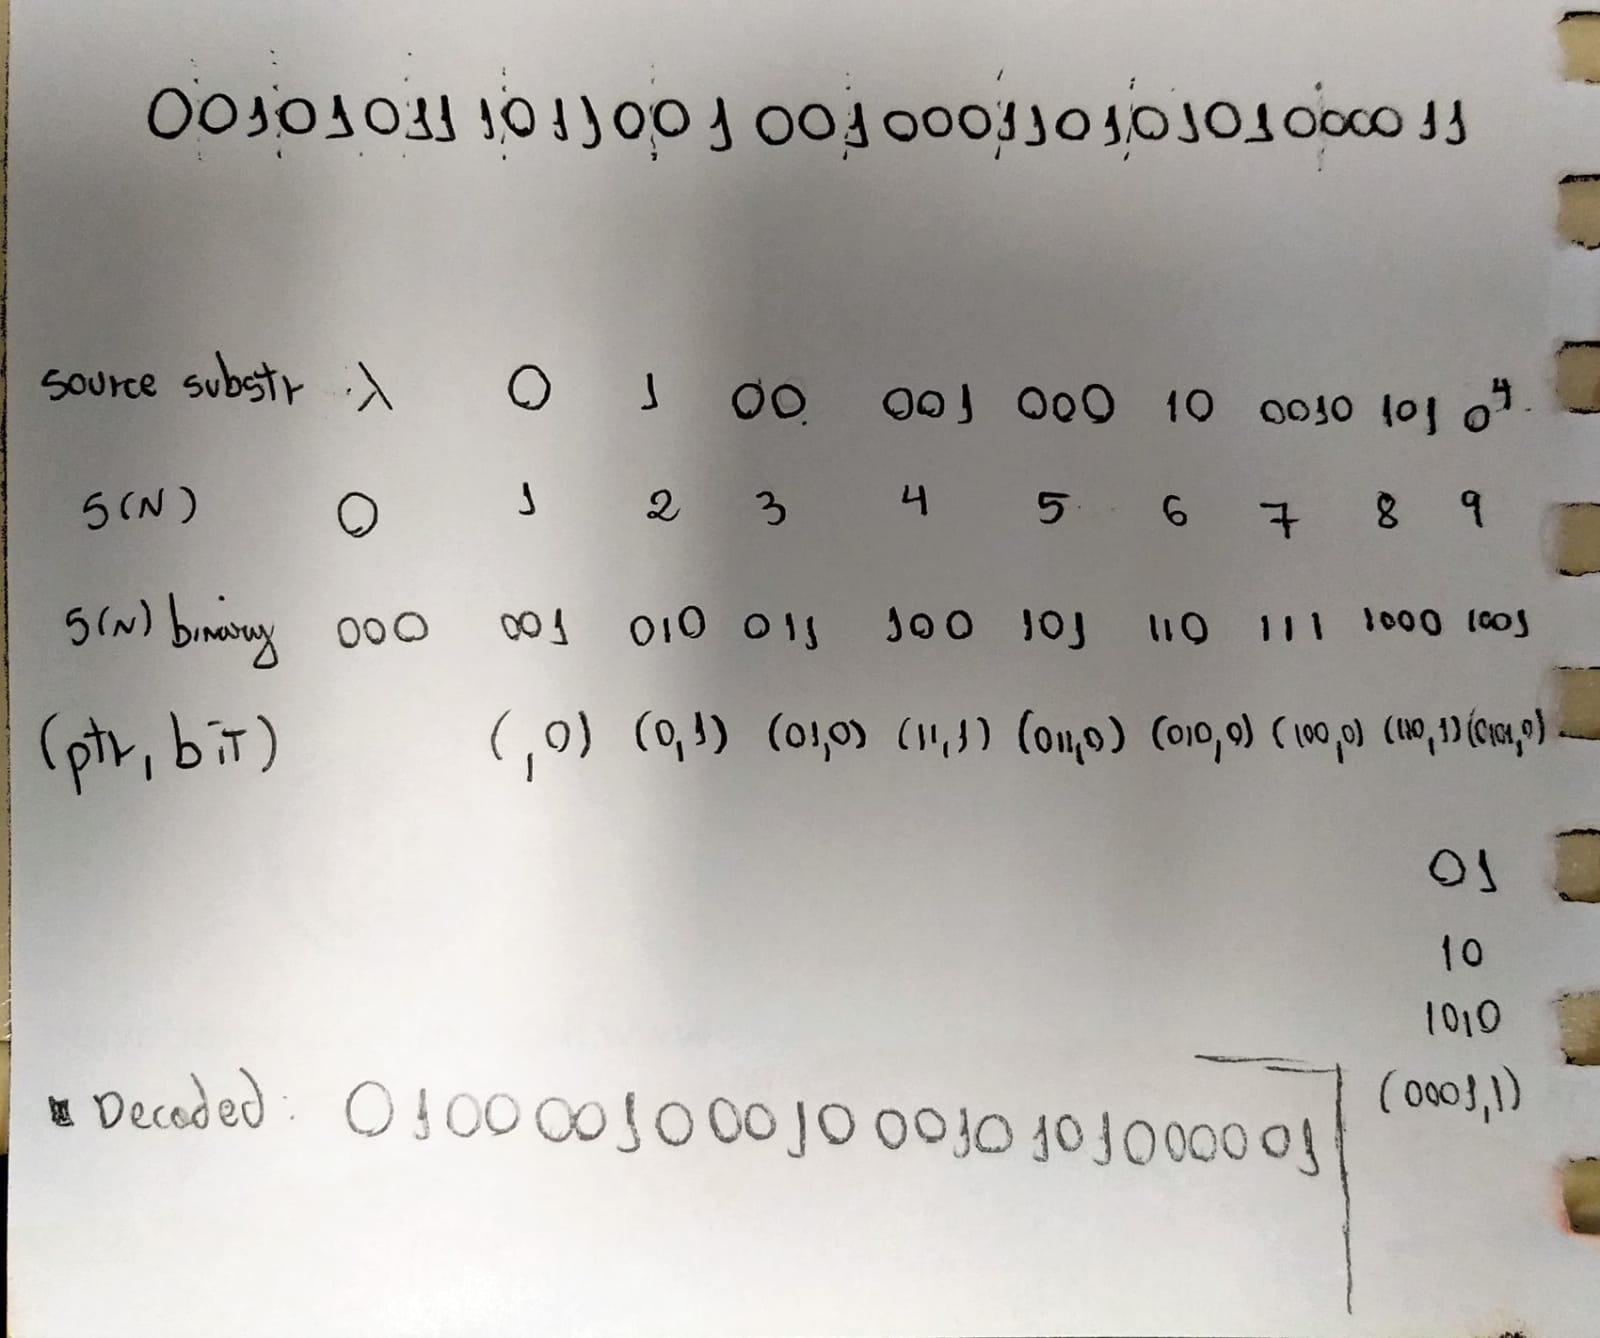 00101011101100100100011010101000011
source substr λ 0 1 00 001 000 10 0010 101 0⁴
S(N) 0 1 2 3 4 5 6 7 8 9
S(N) binary 000 001 010 011 100 101 110 111 1000 1001
(ptr, bit) (,0) (0,1) (01,0) (11,1) (011,0) (010,0) (100,0) (110,1) (0101,0)
01
10
1010
(0001,1)
Decoded: 0100001000100010101000001